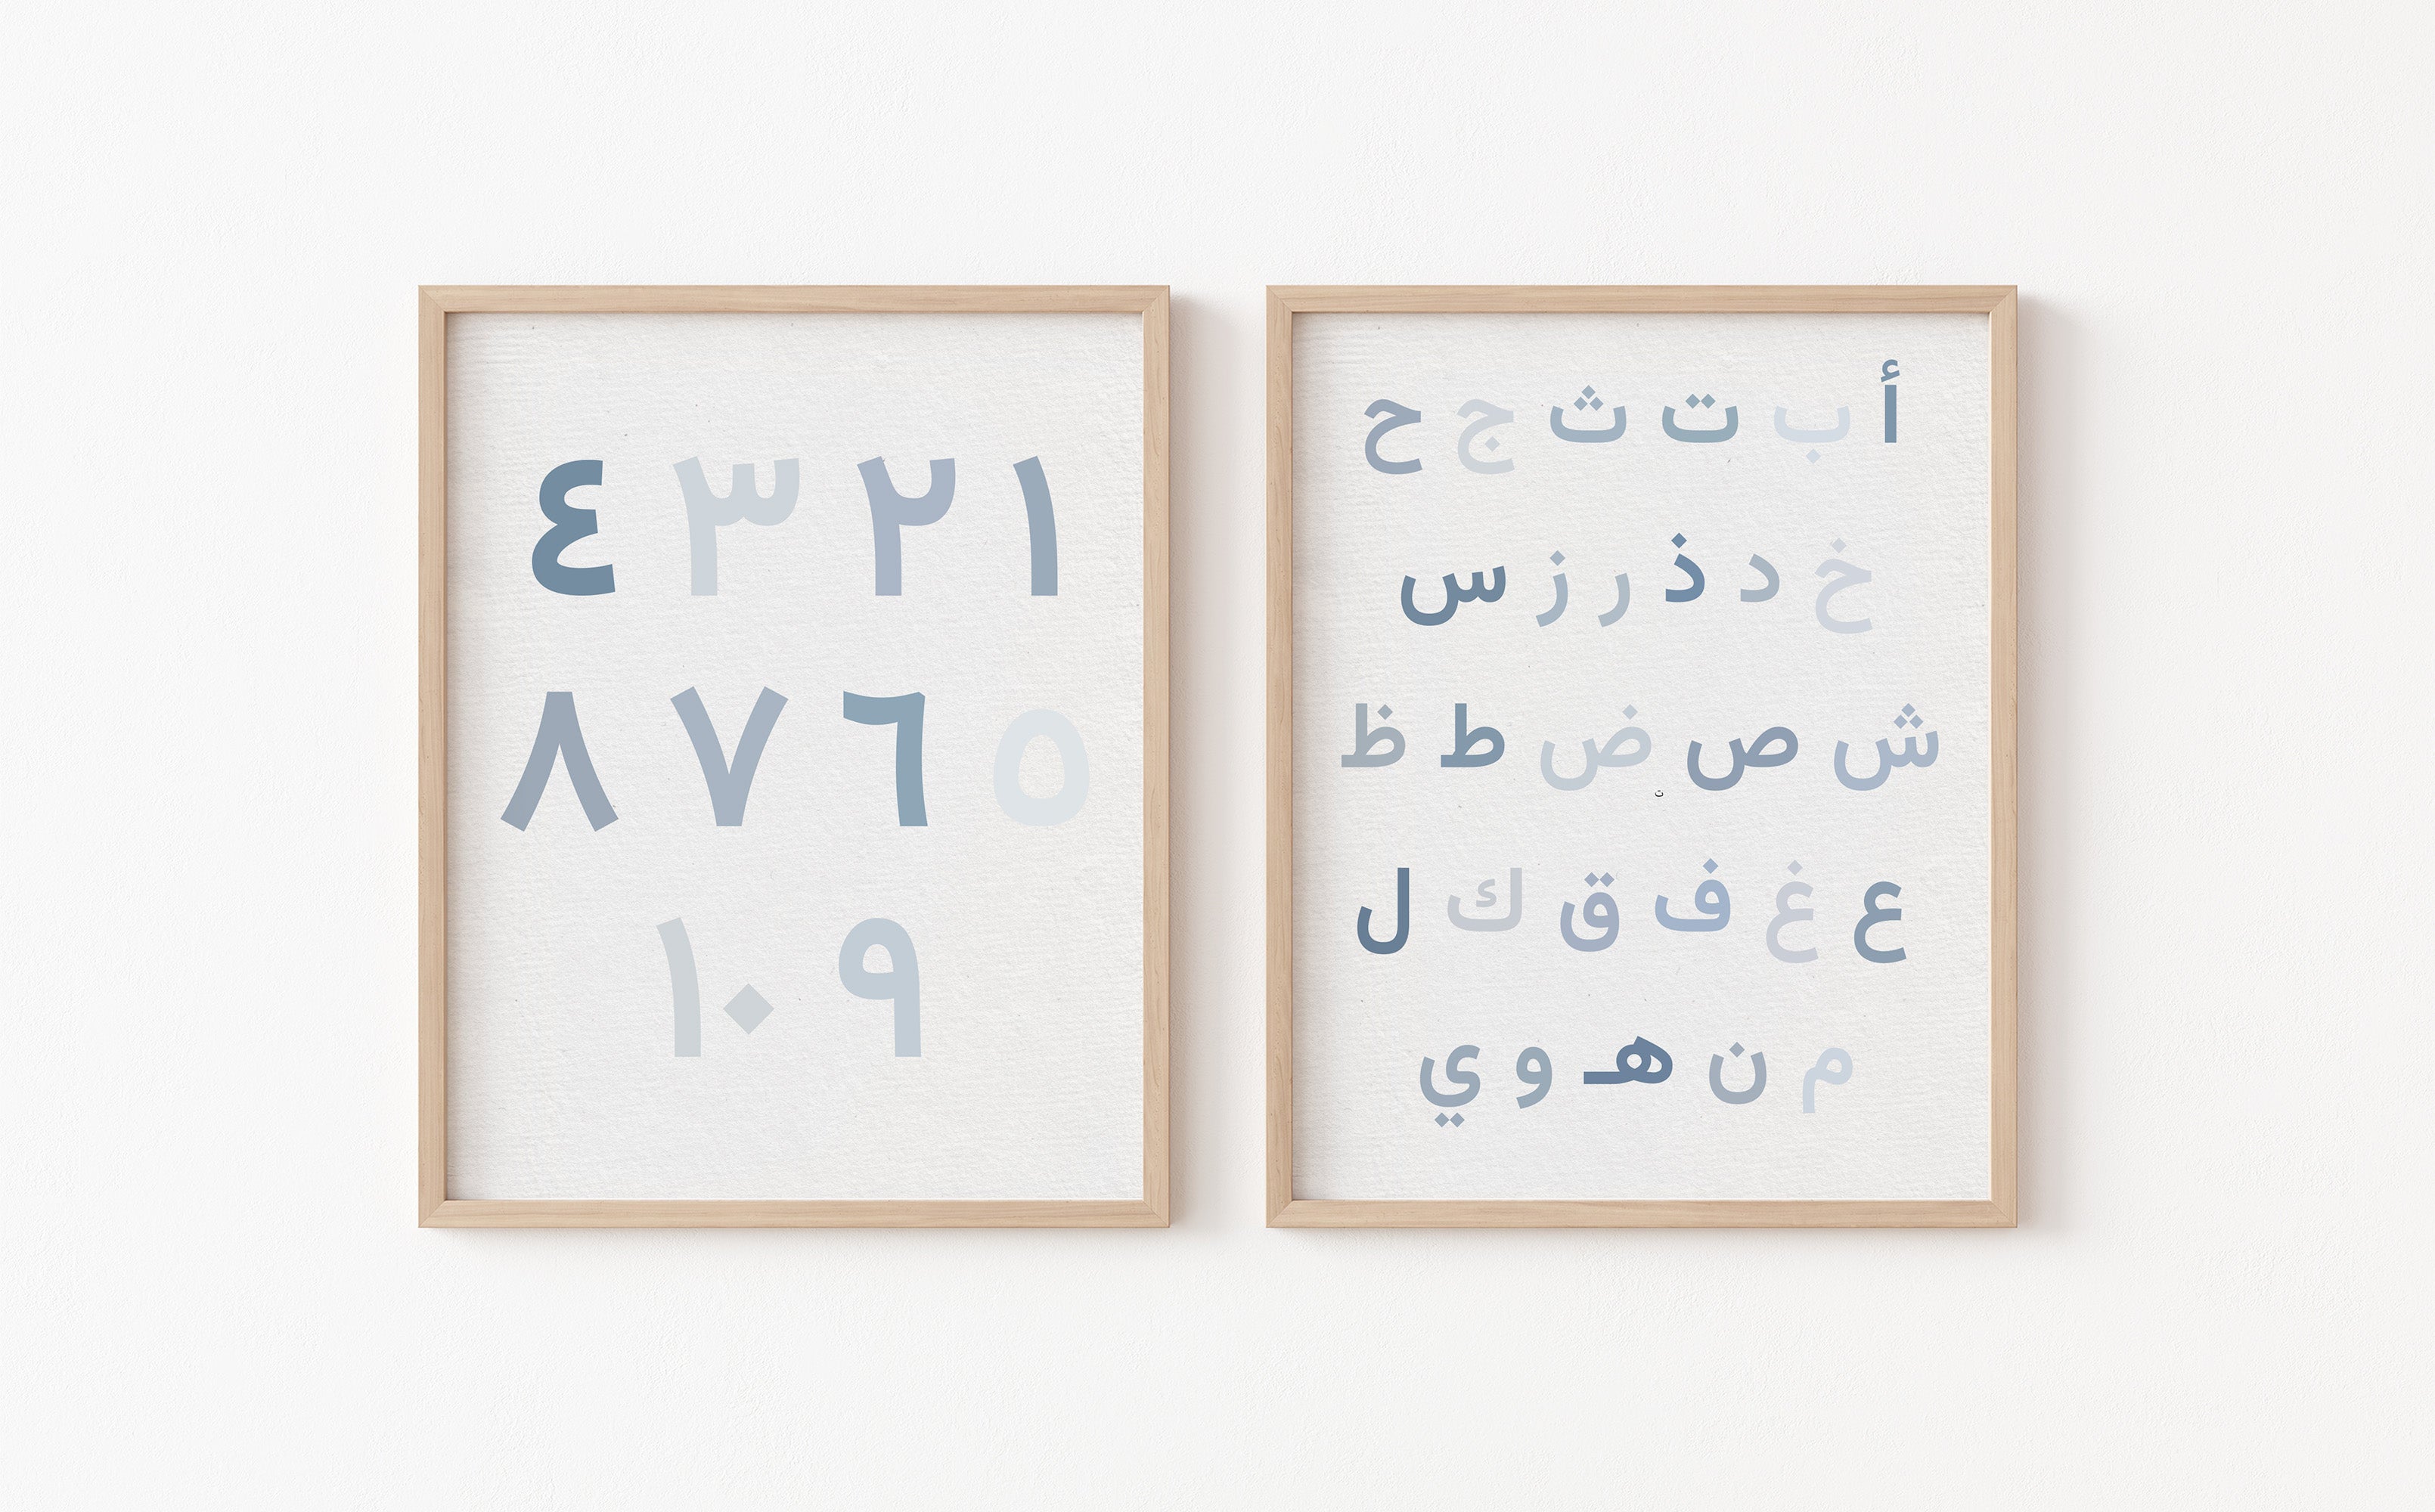 ١ ٢ ٣ ٤
٥ ٦ ٧ ٨
٩ ١٠
أ ب ت ث ج ح
خ د ذ ر ز س
ش ص ض ط ظ
ت
ع غ ف ق ك ل
م ن هـ و ي